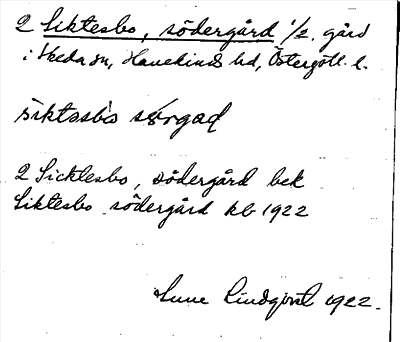 2 Siktesbo, södergård 1/2. gård
i Skeda sn, Hanekinds hd, Östergötl. l.
siktəsbo sörgad
2 Sicktesbo, södergård bek
Siktesbo södergård kb 1922
Sune Lindqvist 1922.